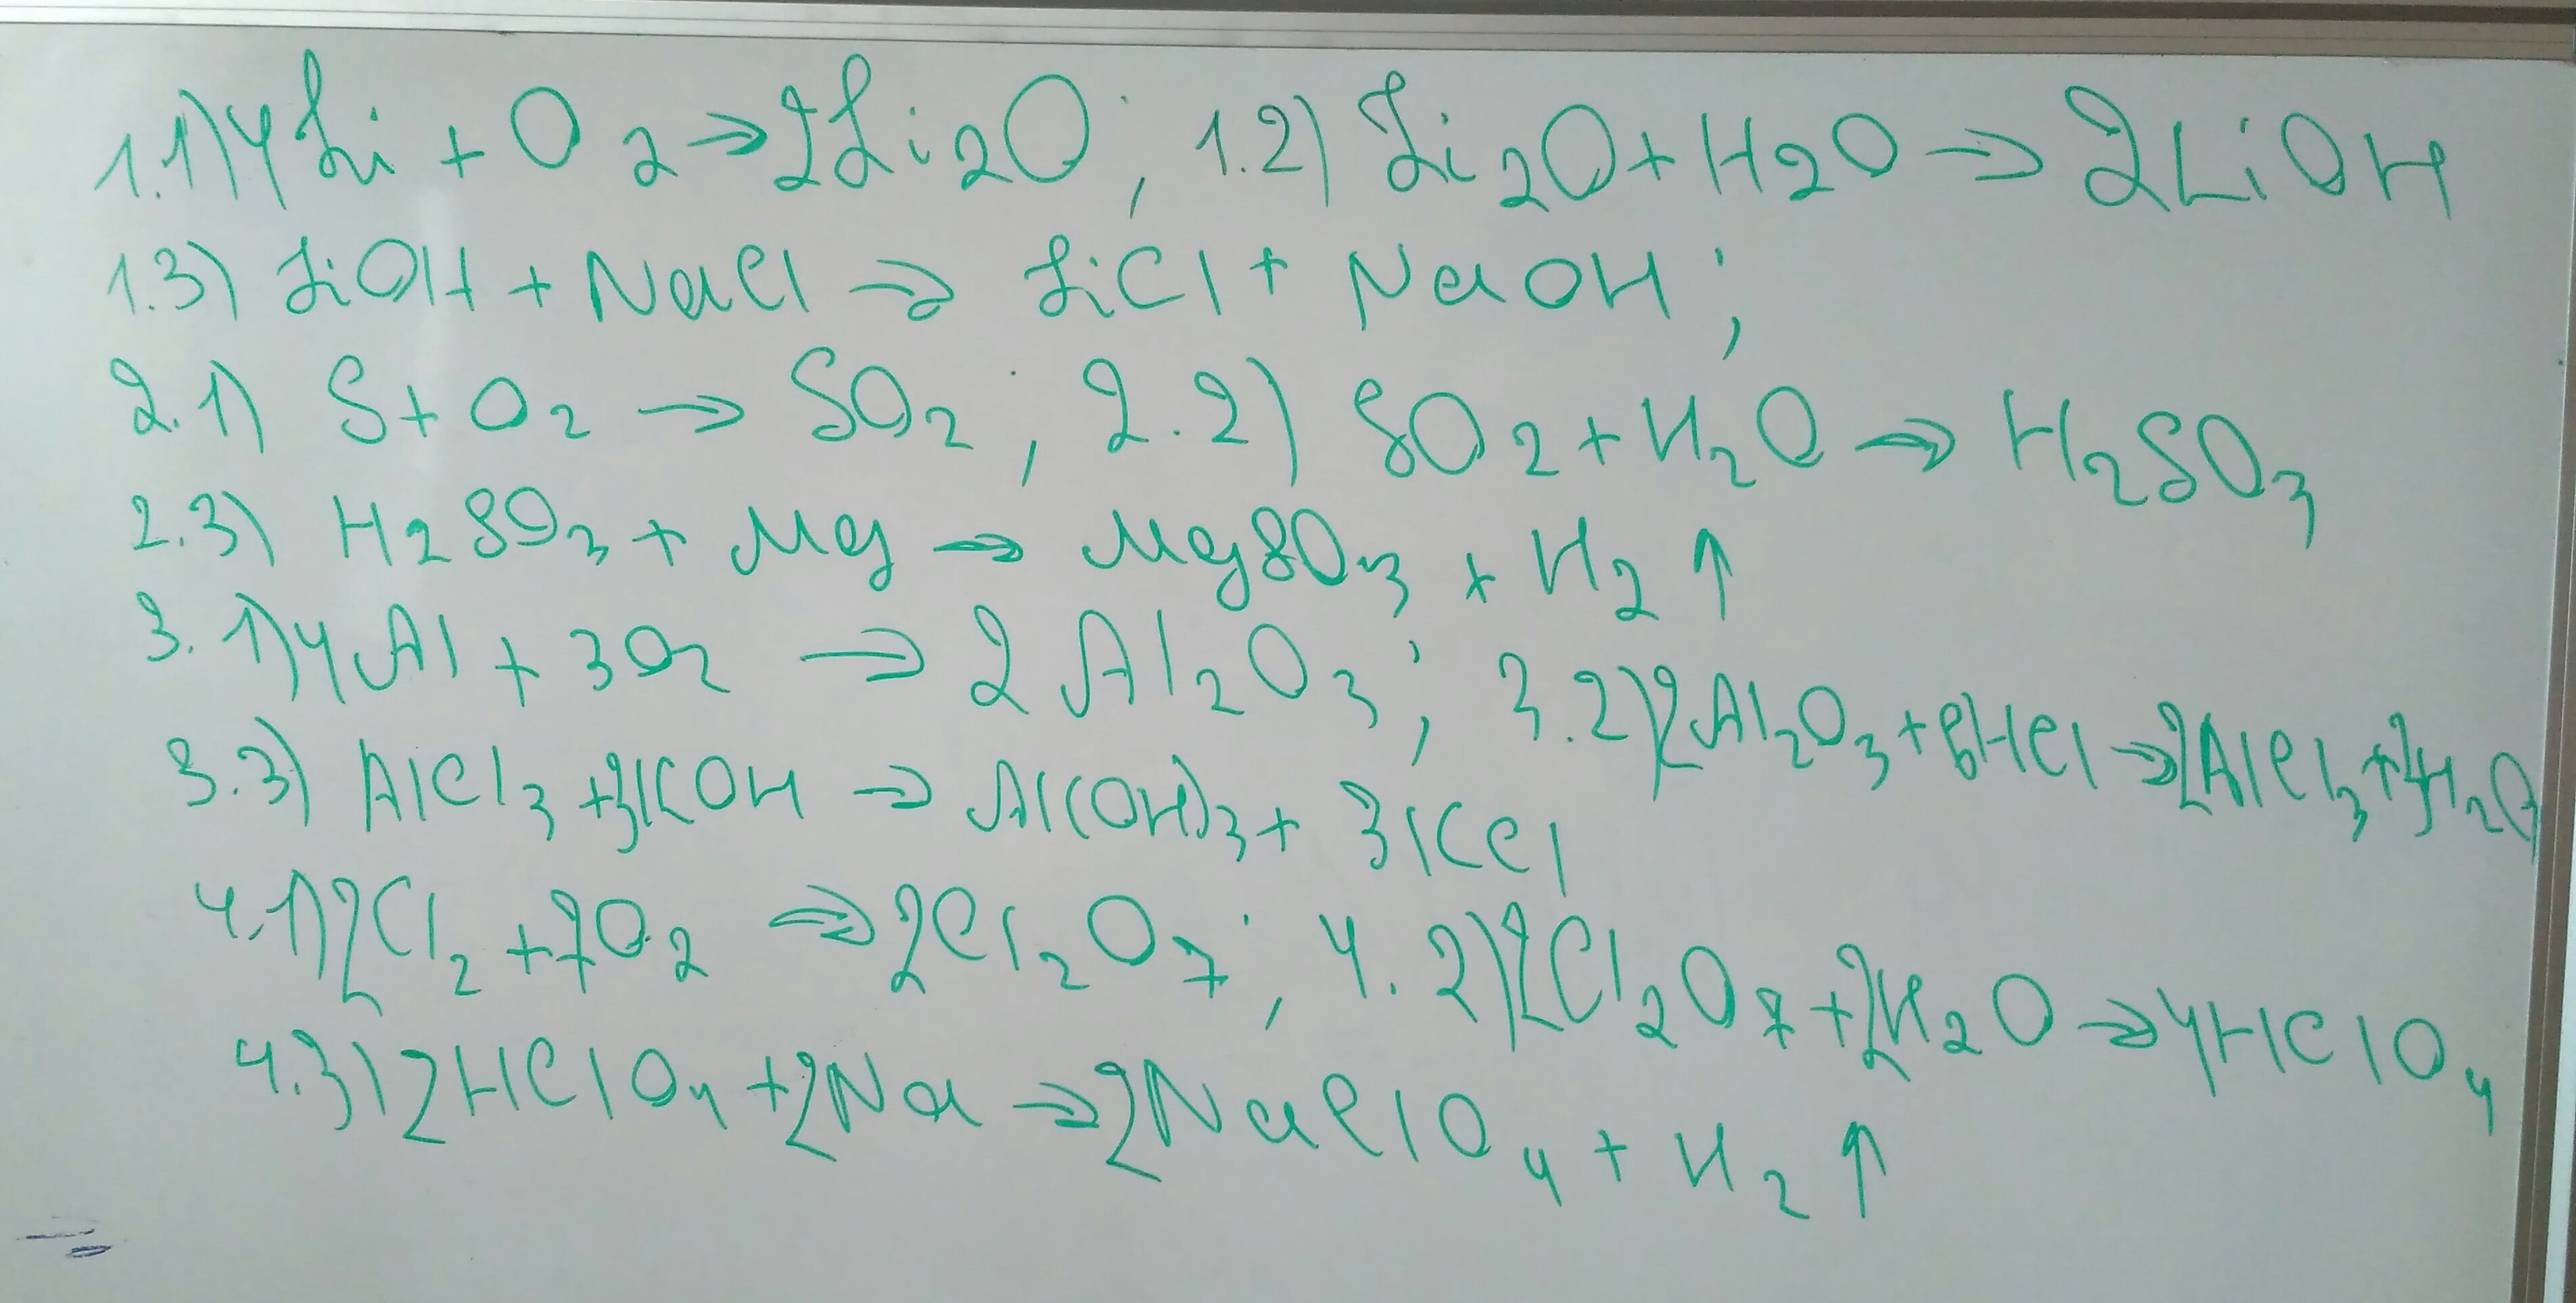 1.1) 4Li + O2 → 2Li2O ; 1.2) Li2O + H2O → 2LiOH
1.3) LiOH + NaCl → LiCl + NaOH ;
2.1) S + O2 → SO2 ; 2.2) SO2 + H2O → H2SO3
2.3) H2SO3 + Mg → MgSO3 + H2 ↑
3.1) 4Al + 3O2 → 2Al2O3 ; 3.2) 2Al2O3 + 6HCl → 2AlCl3 + H2O
3.3) AlCl3 + 3KOH → Al(OH)3 + 3KCl
4.1) 2Cl2 + 7O2 → 2Cl2O7 ; 4.2) 2Cl2O7 + 2H2O → 4HClO4
4.3) 2HClO4 + 2Na → 2NaClO4 + H2 ↑